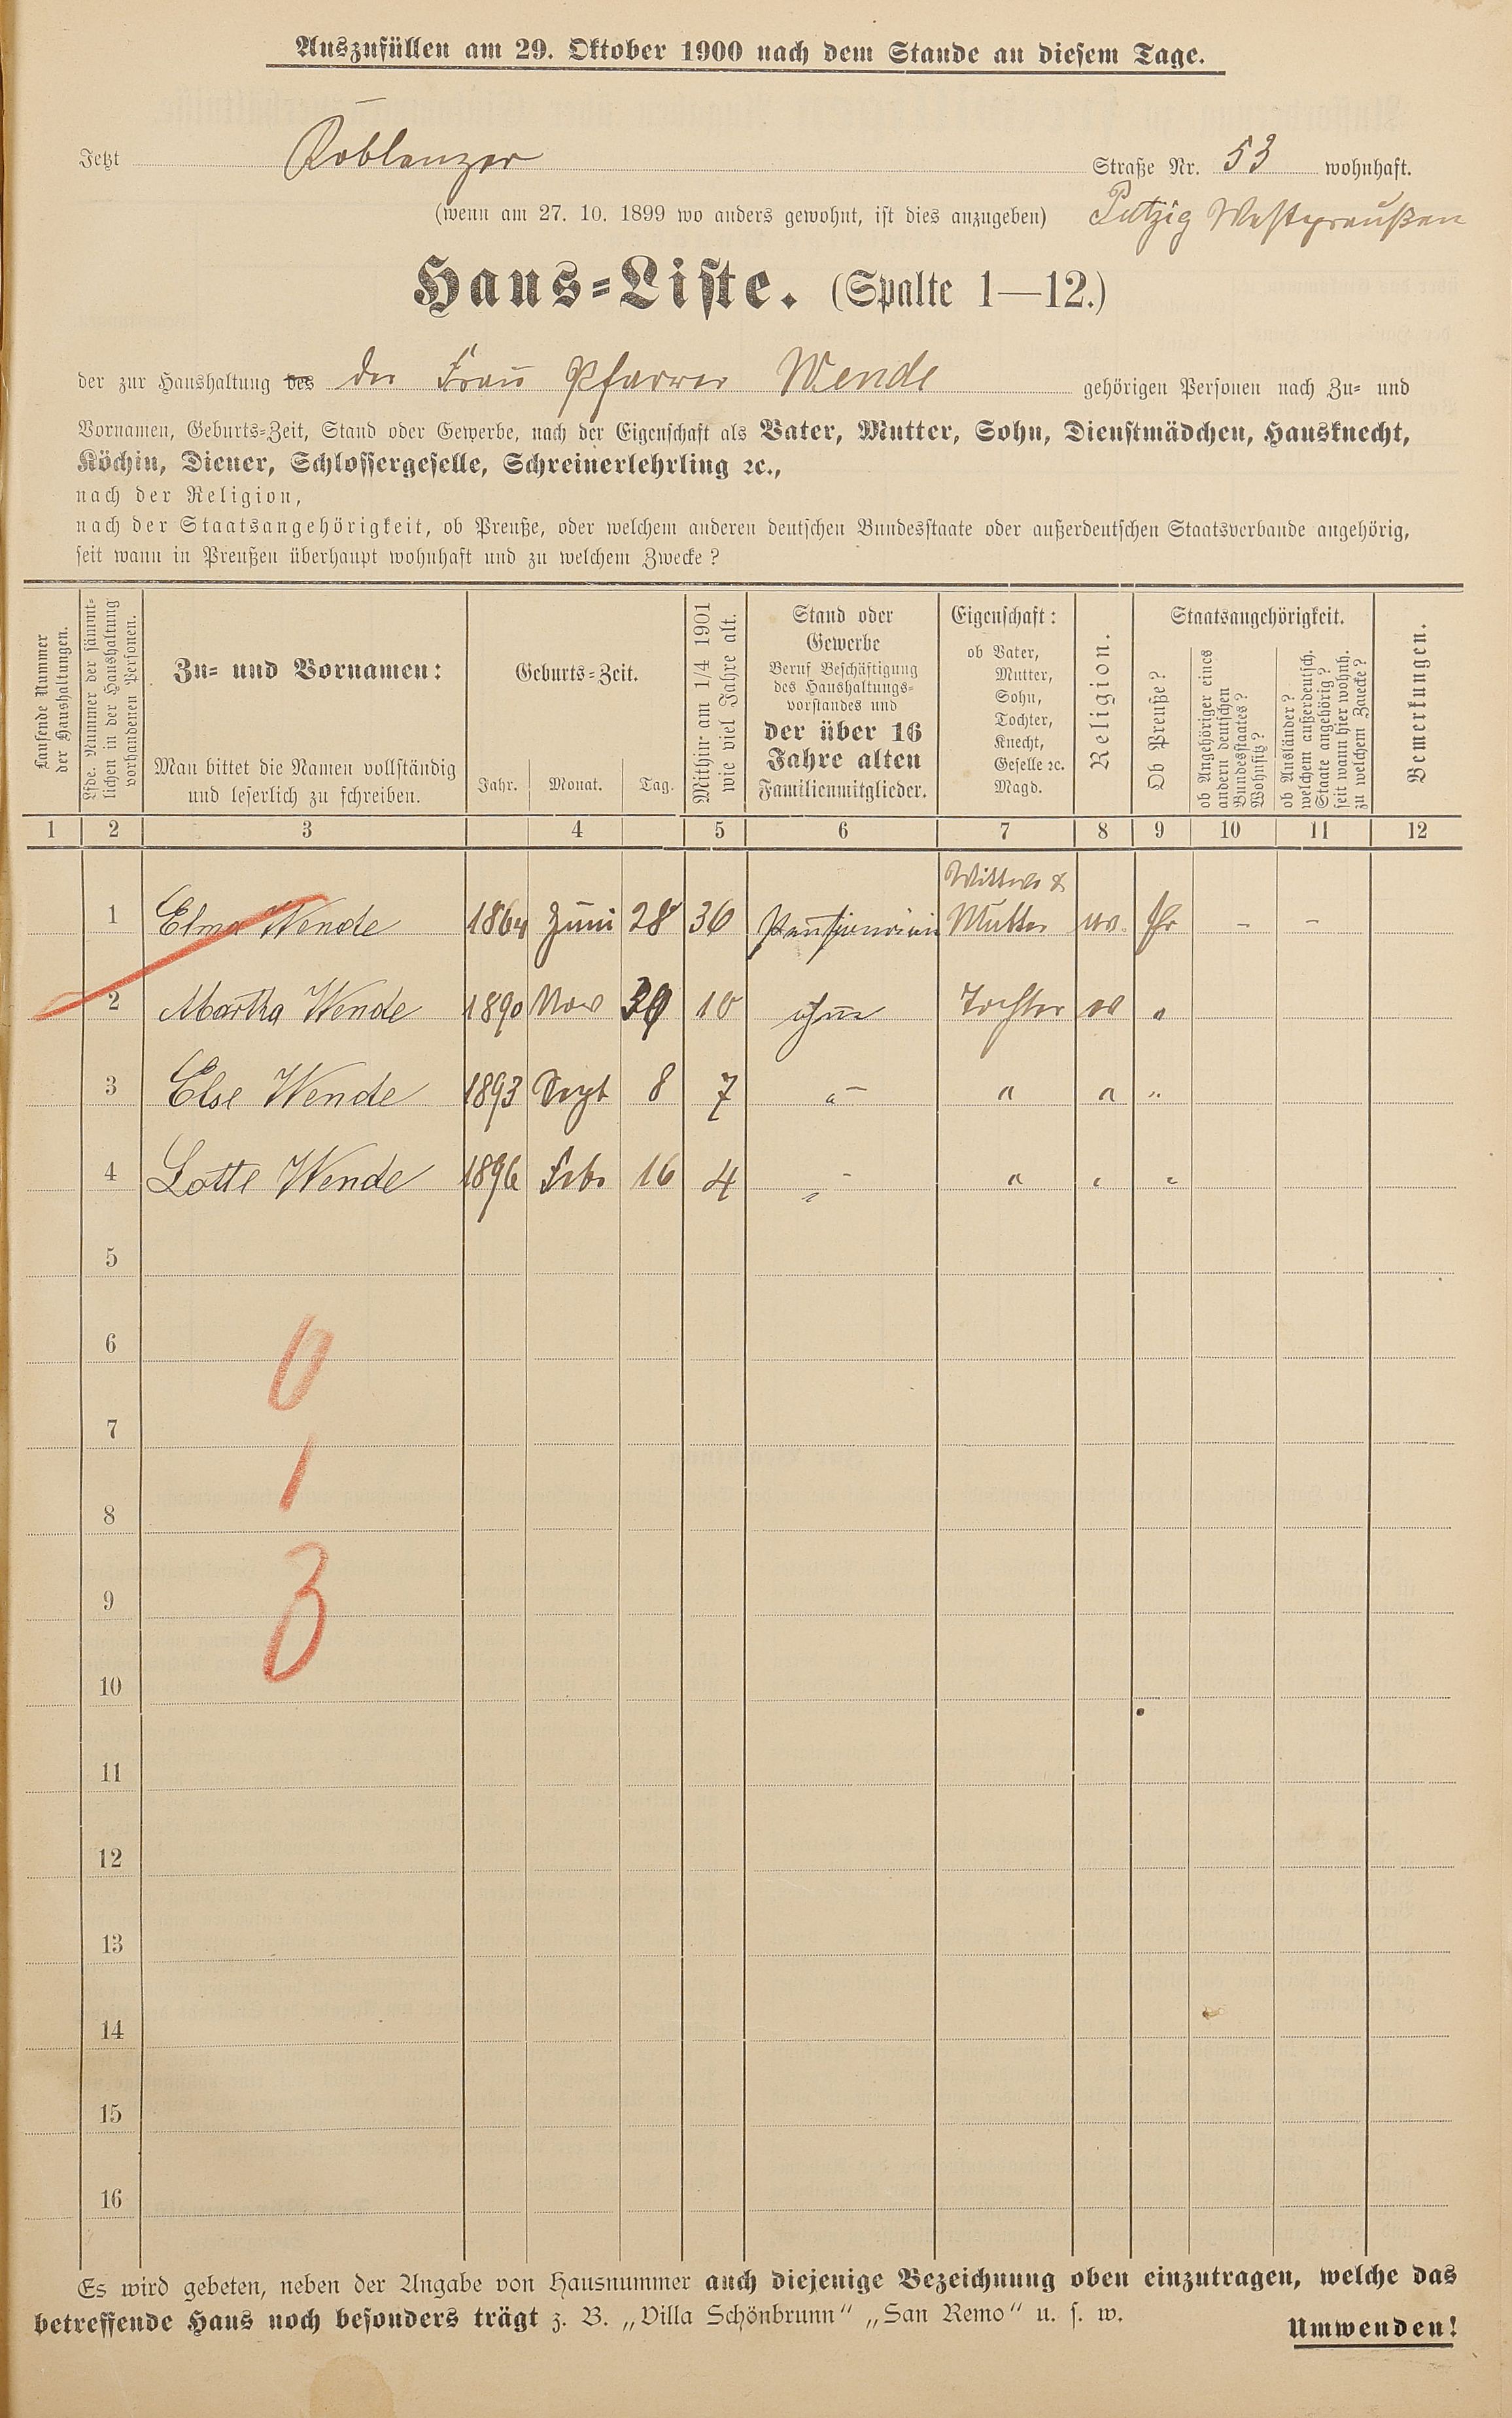 Auszufüllen am 29. Oktober 1900 nach dem Stande an diesem Tage.
Jetzt Koblenzer Straße Nr. 53 wohnhaft.
(wenn am 27. 10. 1899 wo anders gewohnt, ist dies anzugeben) Putzig Westpreußen
Haus-Liste. (Spalte 1—12.)
der zur Haushaltung des der Frau Pfarrer Wende gehörigen Personen nach Zu- und
Vornamen, Geburts-Zeit, Stand oder Gewerbe, nach der Eigenschaft als Vater, Mutter, Sohn, Dienstmädchen, Hausknecht,
Köchin, Diener, Schlossergeselle, Schreinerlehrling ꝛc.,
nach der Religion,
nach der Staatsangehörigkeit, ob Preuße, oder welchem anderen deutschen Bundesstaate oder außerdeutschen Staatsverbande angehörig,
seit wann in Preußen überhaupt wohnhaft und zu welchem Zwecke?
Laufende Nummer
der Haushaltungen.
Lfde. Nummer der sämmt-
lichen in der Haushaltung
vorhandenen Personen.
Zu- und Vornamen:
Man bittet die Namen vollständig
und leserlich zu schreiben.
Geburts-Zeit.
Jahr. Monat. Tag.
Mithin am 1/4 1901
wie viel Jahre alt.
Stand oder
Gewerbe
Beruf Beschäftigung
des Haushaltungs-
vorstandes und
der über 16
Jahre alten
Familienmitglieder.
Eigenschaft:
ob Vater,
Mutter,
Sohn,
Tochter,
Knecht,
Geselle ꝛc.
Magd.
Religion.
Staatsangehörigkeit.
Ob Preuße?
ob Angehöriger eines
andern deutschen
Bundesstaates?
Wohnsitz?
ob Ausländer?
welchem außerdeutsch.
Staate angehörig?
seit wann hier wohnh.
zu welchem Zwecke?
Bemerkungen.
1 2 3 4 5 6 7 8 9 10 11 12
Wittwe &
1 Elma Wende 1864 Juni 28 36 Pensionärin Mutter ev. Pr - -
2 Martha Wende 1890 Nov 10 ohne Tochter ev "
3 Else Wende 1893 Sept 8 7 " " " "
4 Lotte Wende 1896 Febr 16 4 " " " "
5
6
0
7
1
8
9
3
10
11
12
13
14
15
16
Es wird gebeten, neben der Angabe von Hausnummer auch diejenige Bezeichnung oben einzutragen, welche das
betreffende Haus noch besonders trägt z. B. „Villa Schönbrunn“ „San Remo“ u. s. w.
Umwenden!